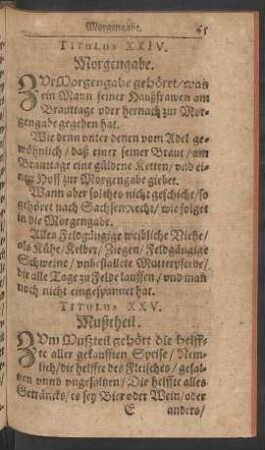 Morgengabe. 65
TITULUS XXIV.
Morgengabe.
ZUr Morgengabe gehöret / was
ein Mann seiner Haußfrawen am
Brauttage oder hernach zur Mor-
gengabe gegeben hat.
Wie denn unter denen vom Adel ge-
wöhnlich / daß einer seiner Braut / am
Brauttage eine güldene Ketten / und ei-
nen Hoff zur Morgengabe giebet.
Wann aber solches nicht geschicht / so
gehöret nach Sachsen Recht / wie folget
in die Morgengabe.
Alles Feldgängige weibliche Viehe /
als Kühe / Kelber / Ziegen / Feldgängige
Schweine / unbestallete Mutterpferde /
die alle Tage zu Felde lauffen / und man
noch nicht eingespannet hat.
TITULUS XXV.
Mußtheil.
ZUm Mußteil gehört die helff-
te aller gekaufften Speise / Nem-
lich / die helffte des Fleisches / gesal-
tzen unnd ungesaltzen / Die helffte alles
Getränckes / es sey Bier oder Wein / oder
E anders /